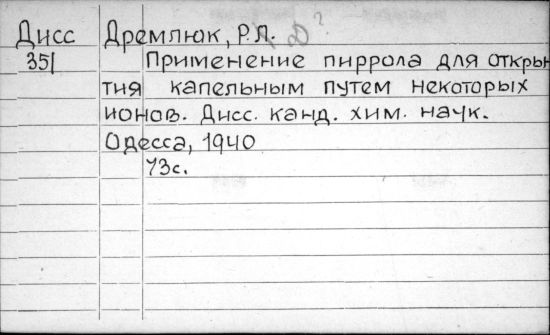 Дисс Дремлюк, Р.Л.
351 Применение пиррола для откры
тия капельным путем некоторых
ионов. Дисс. канд. хим. наук.
Одесса, 1940
73с.